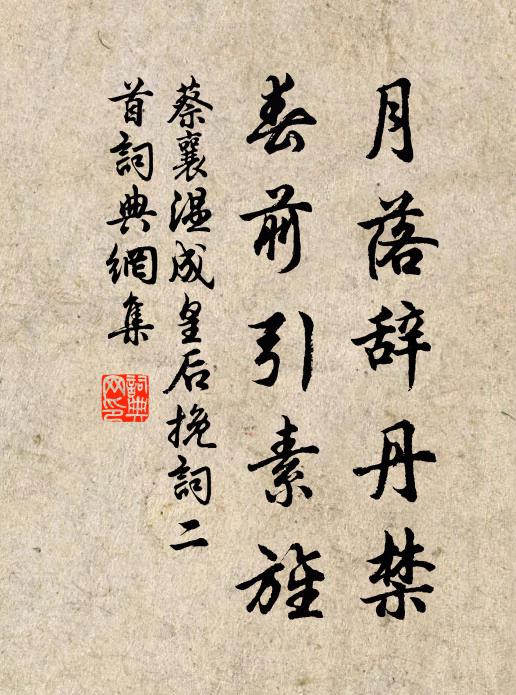 月落辞丹禁
春前引素旌
蔡襄温成皇后挽詞二
首詞典網集
詞典网印